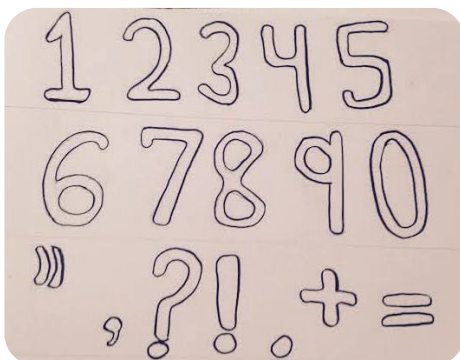 1 2 3 4 5
6 7 8 9 0
" , ? ! . + =